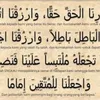 رِنَا الْحَقَّ حَقًّا، وَارْزُقْنَا ا
الْبَاطِلَ بَاطِلًا، وَارْزُقْنَا ا
تَجْعَلْهُ مُلْتَبِسًا عَلَيْنَا فَنَضِ
وَاجْعَلْنَا لِلْمُتَّقِينَ إِمَامًا